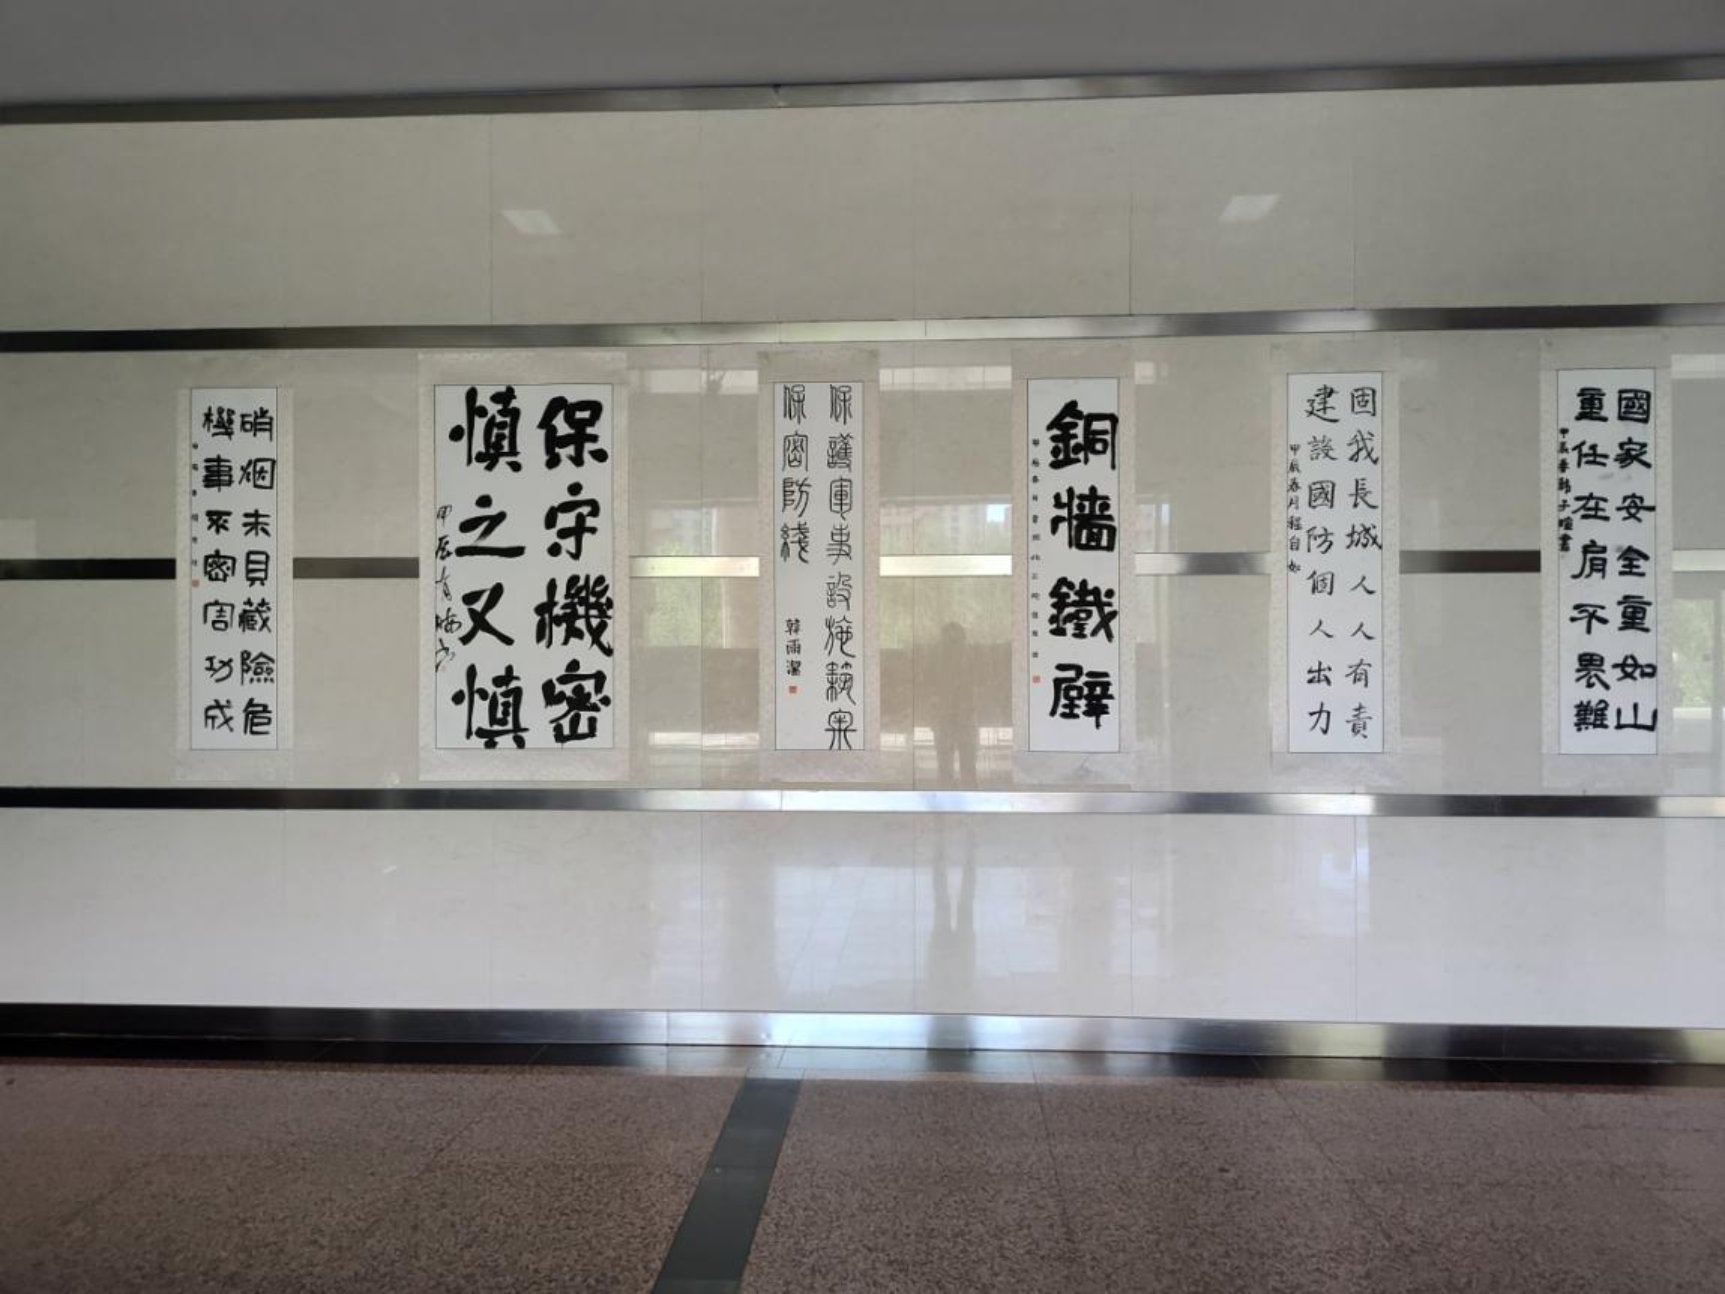 國家安全重如山
重任在肩不畏難
甲辰春韩子煊書
固我長城人人有責
建設國防個人出力
甲辰春月程自如
銅牆鐵壁
保護軍事設施築牢
保密防綫
韓雨潔
保守機密
慎之又慎
甲辰
硝烟未見藏險危
機事不密害功成